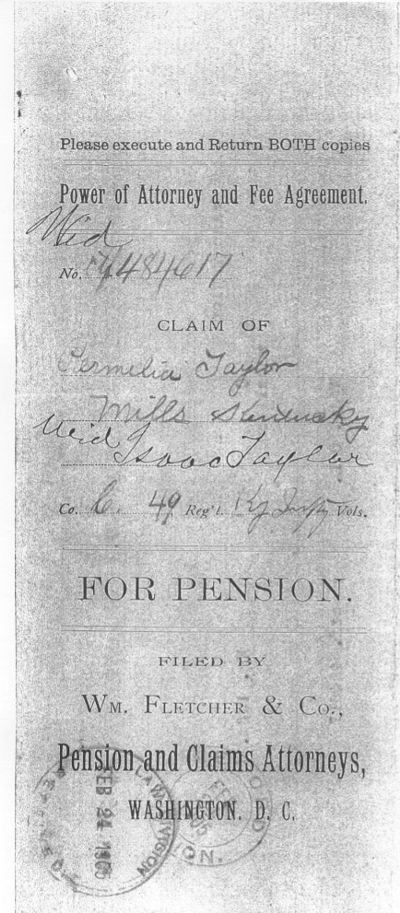 Please execute and Return BOTH copies
Power of Attorney and Fee Agreement.
Wid
No. 484617
CLAIM OF
Permelia Taylor
Mills Kentucky
Wid Isaac Taylor
Co. C. 49 Reg't. Ky Infty Vols.
FOR PENSION.
FILED BY
WM. FLETCHER & CO.,
Pension and Claims Attorneys,
WASHINGTON. D. C.
LAW DIVISION
FEB 24 1905